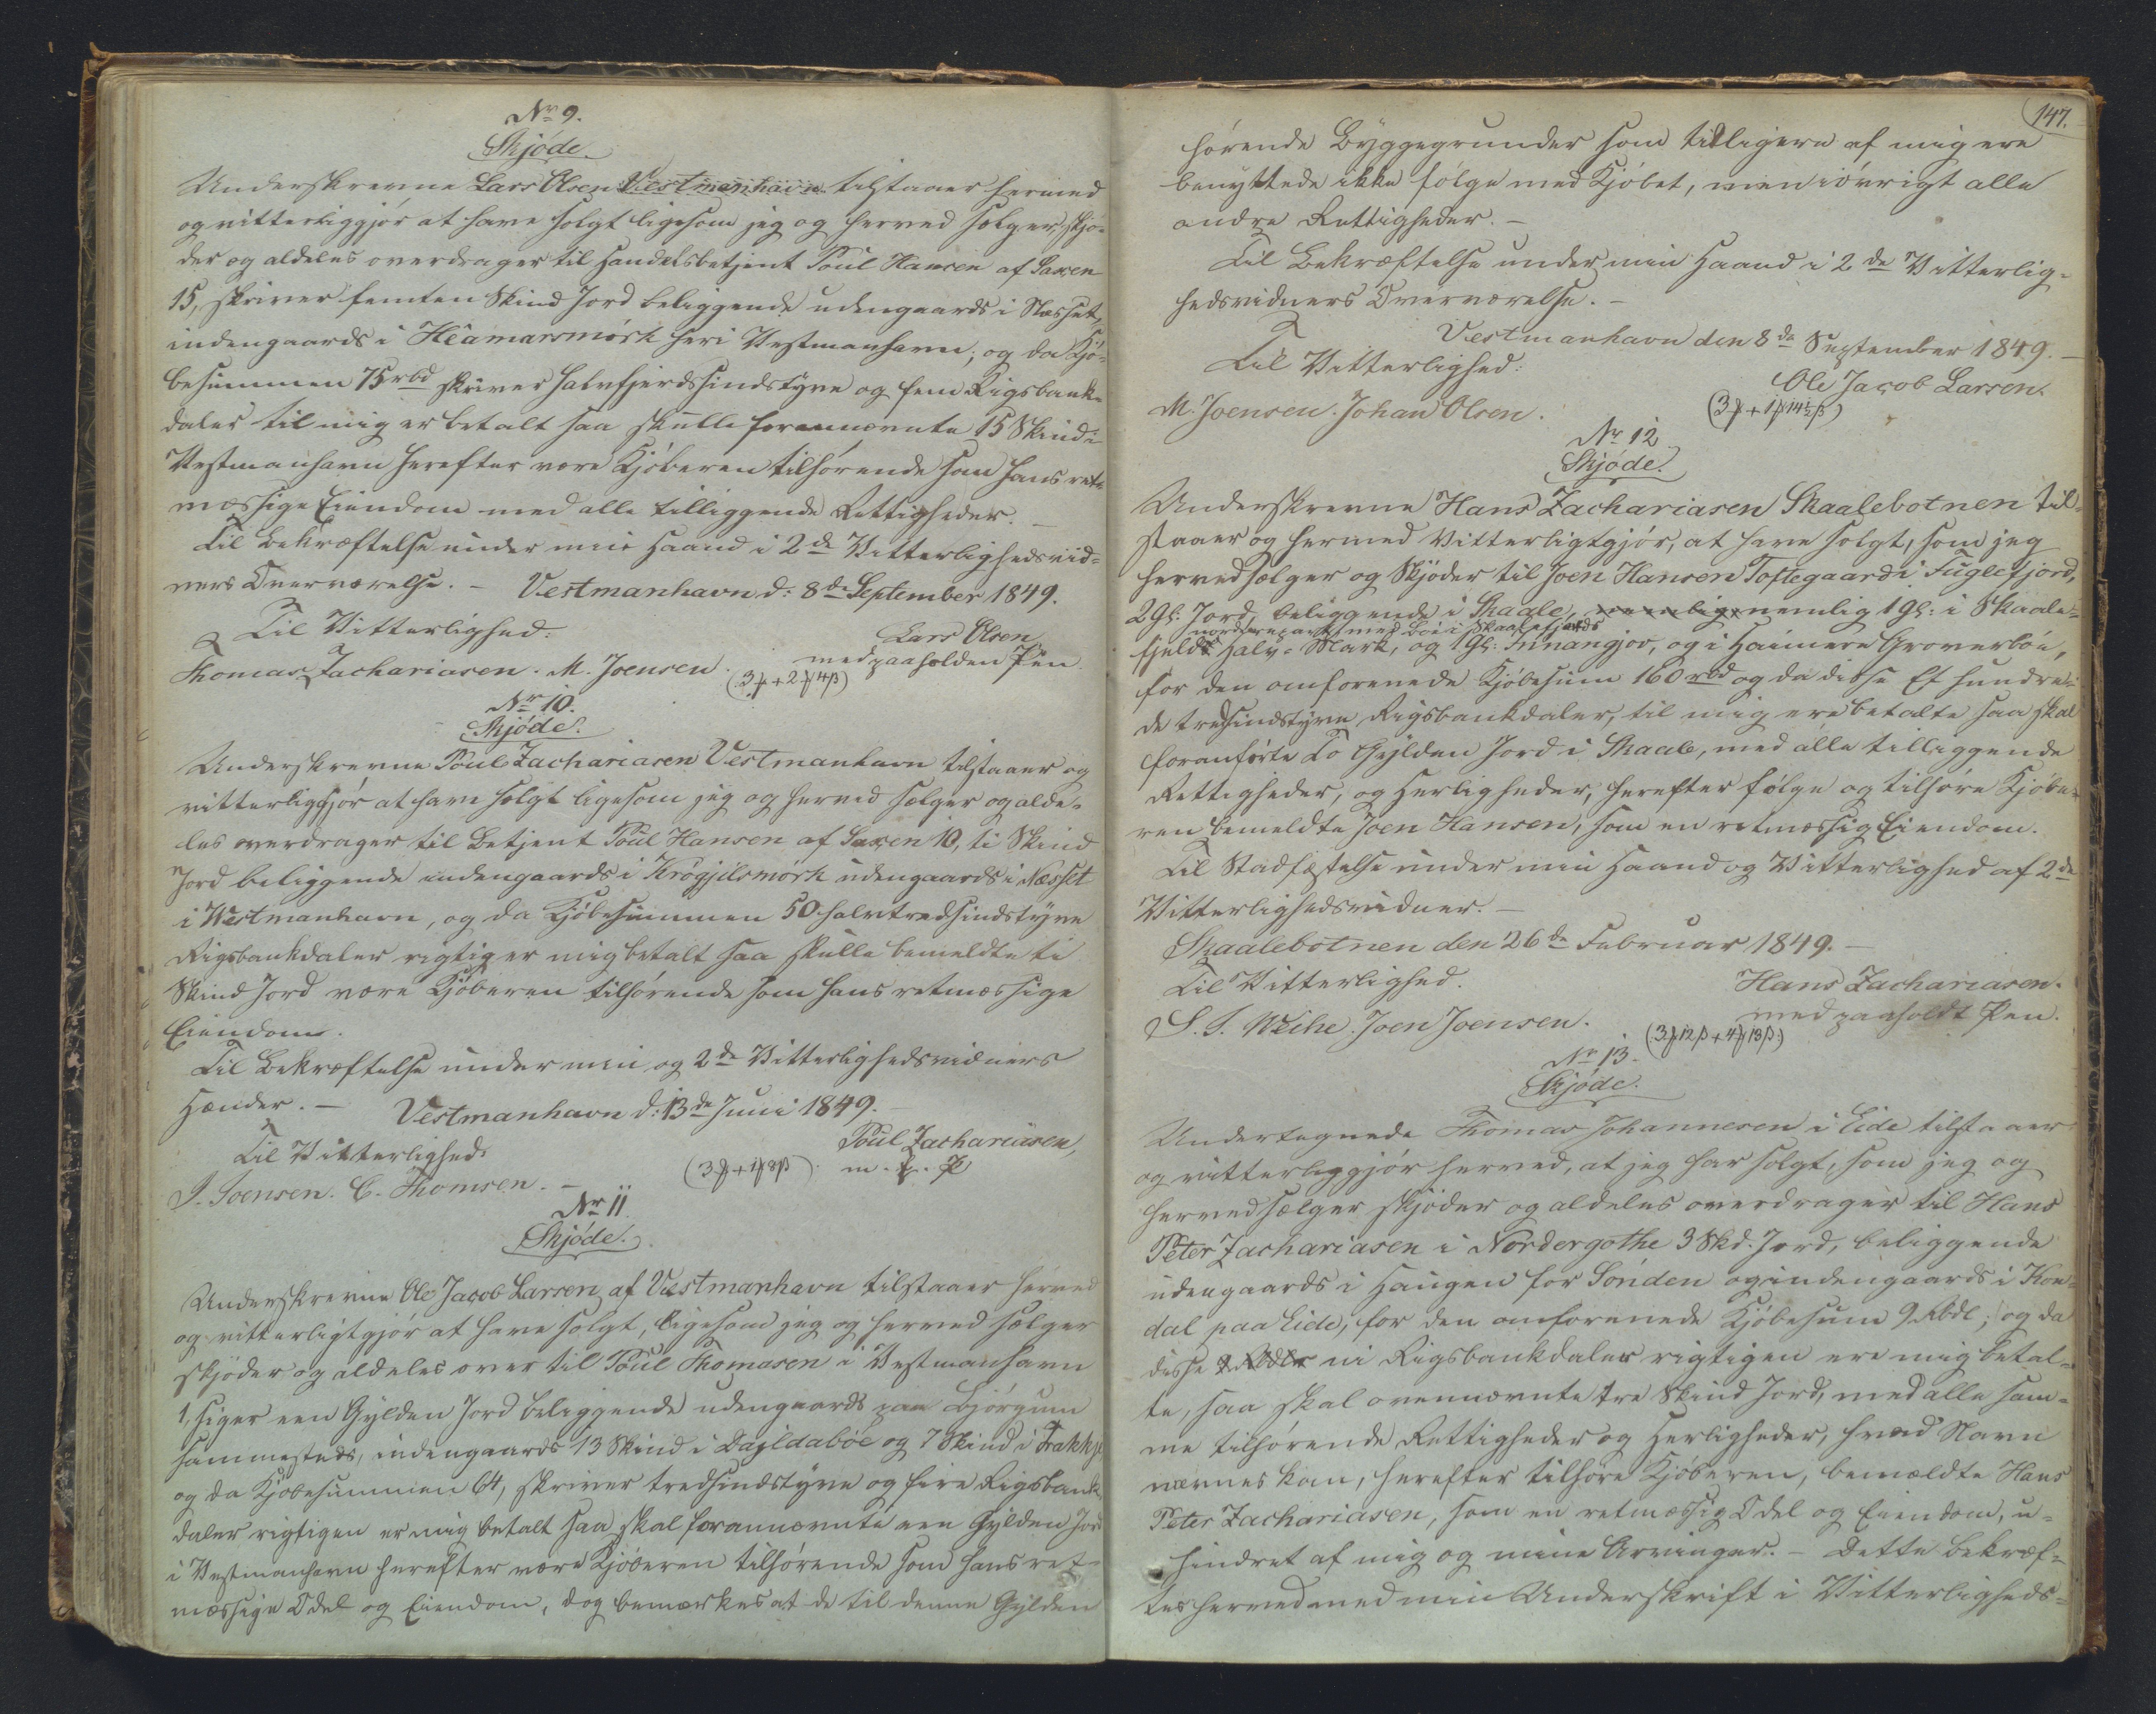 No 9.
Skjöde
Underskrevne Lars Olsen Vestmanhavn tilstaaer hermed
og vitterliggjör at have solgt ligesom jeg og herved sælger, skjö-
der og aldeles overdrager til Handelsbetjent Poul Hansen af Saxen
15, skriver femten Skind Jord beliggende udengaards i Næsset,
indengaards i Hêamarsmörk heri Vestmanhavn; og da Kjö-
besummen 75 rbd skriver halvfjerdsindstyve og fem Rigsbank-
daler til mig er betalt saa skulle forannævnte 15 Skind i
Vestmanhavn herefter være Kjöberen tilhörende som hans ret-
mæssige Eiendom med alle tilliggende Rettigheder. –
Til Bekræftelse under min Haand i 2de Vitterlighedsvid-
ners Overværelse. – Vestmanhavn d: 8de September 1849.
Til Vitterlighed:
Lars Olsen
Thomas Zachariasen. M. Joensen. med paaholden Pen.
(3 + 2 4ß)
Nr 10.
Skjöde.
Underskrevne Poul Zachariasen Vestmanhavn tilstaaer og
vitterliggjör at have solgt ligesom jeg og herved sælger og alde-
les overdrager til Betjent Poul Hansen af Saxen 10, ti Skind
Jord beliggende indengaards i Krógjilsmörk udengaards i Næsset
i Westmanhavn, og da Kjöbesummen 50 halvtredsindstyve
Rigsbankdaler rigtig er mig betalt saa skulle bemeldte ti
Skind Jord være Kjöberen tilhörende som hans retmæssige
Eiendom.
Til Bekræftelse under min og 2de Vitterlighedsvidners
Hænder. – Vestmanhavn d: 13de Juni 1849.
Til Vitterlighed:
Poul Zachariasen,
(3 + 1 8ß) m. p. P
J. Joensen. C. Thomsen. –
Nr 11.
Skjöde.
Underskrevne Ole Jacob Larsen af Vestmanhavn tilstaaer herved
og vitterligtgjör at have solgt, ligesom jeg og herved sælger
skjöder og aldeles over til Poul Thomasen i Vestmanhavn
1, siger een Gylden Jord beliggende udengaards paa Björgum
sammesteds, indengaards 13 Skind i Dagldaböe og 7 Skind i Trakkje
og da Kjöbesummen 64, skriver tredsindstyve og fire Rigsbank-
daler rigtigen er mig betalt saa skal forannævnte een Gylden Jord
i Vestmanhavn herefter være Kjöberen tilhörende som hans ret-
mæssige Odel og Eiendom, dog bemærkes at de til denne Gylden
147.
hörende Byggegrunder som tilligere af mig ere
benyttede ikke fölge med Kjöbet, men iövrigt alle
andre Rettigheder. –
Til Bekræftelse under min Haand i 2de Vitterlig-
hedsvidners Overværelse. –
Vestmanhavn den 8de September 1849. –
Til Vitterlighed:
Ole Jacob Larsen.
M. Joensen. Johan Olsen.
(3 + 1 14½ß)
Nr 12
Skjöde.
Underskrevne Hans Zachariasen Skaalebotnen til-
staaer og hermed Vitterligtgjör, at have solgt, som jeg
herved sælger og Skjöder til Joen Hansen Toftegaard i Fuglefjord,
2 Gl: Jord, beliggende i Skaale, nemlig 1 Gl: i Skaale-
nordrepart med Böe i Skaalefjords
fjelds Halv-Mark, og 1 Gl: Innangjov, og i Haimere Groverböe,
for den omforenede Kjöbesum 160 rbd og da disse Et hundre-
de tredsindstyve Rigsbankdaler, til mig ere betalte saa skal
foranförte To Gylden Jord i Skaale, med alle tilliggende
Rettigheder, og Herligheder, herefter fölge og tilhöre Kjöbe-
ren bemeldte Joen Hansen, som en retmæssig Eiendom.
Til Stadfæstelse under min Haand og Vitterlighed af 2de
Vitterlighedsvidner. –
Skaalebotnen den 26de Februar 1849. –
Til Vitterlighed.
Hans Zachariasen.
S. S. Weihe. Joen Joensen.
med paaholdt Pen.
(3 12ß + 4 13ß)
Nr 13.
Skjöde.
Undertegnede Thomas Johannesen i Eide tilstaaer
og vitterliggjör herved, at jeg har solgt, som jeg og
herved sælger skjöder og aldeles overdrager til Hans
Peter Zachariasen i Nordergöthe 3 Skd. Jord, beliggende
udengaards i Haugen for Sönden og indengaards i Kon-
dal paa Eide, for den omforenede Kjöbesum 9 Rbdl; og da
disse 9 Rbdlr ni Rigsbankdaler rigtigen ere mig betal-
te, saa skal ovennævnte tre Skind Jord, med alle sam-
me tilhörende Rettigheder og Herligheder, hvad Navn
nævnes kan, herefter tilhöre Kjöberen, bemældte Hans
Peter Zachariasen, som en retmæssig Odel og Eiendom, u-
hindret af mig og mine Arvinger. – Dette bekræf-
tes herved med min Underskrift i Vitterligheds-